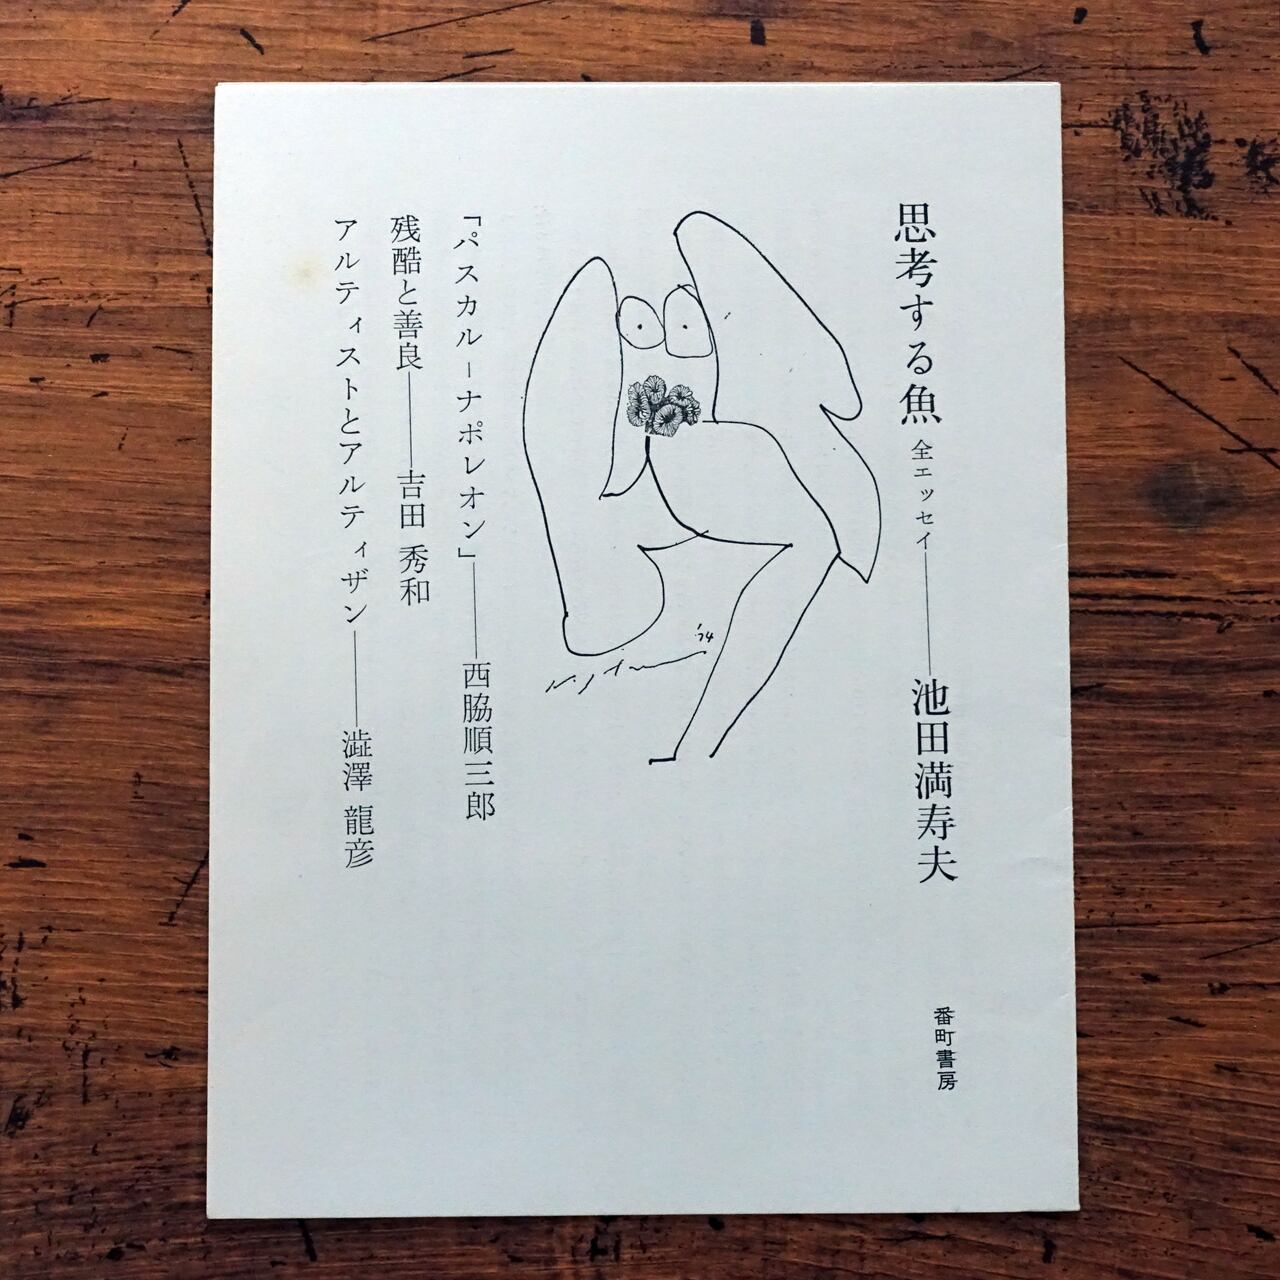 思考する魚 全エッセイ――池田満寿夫
番町書房
「パスカル―ナポレオン」――西脇順三郎
残酷と善良――吉田 秀和
アルティストとアルティザン――澁澤 龍彦
'74